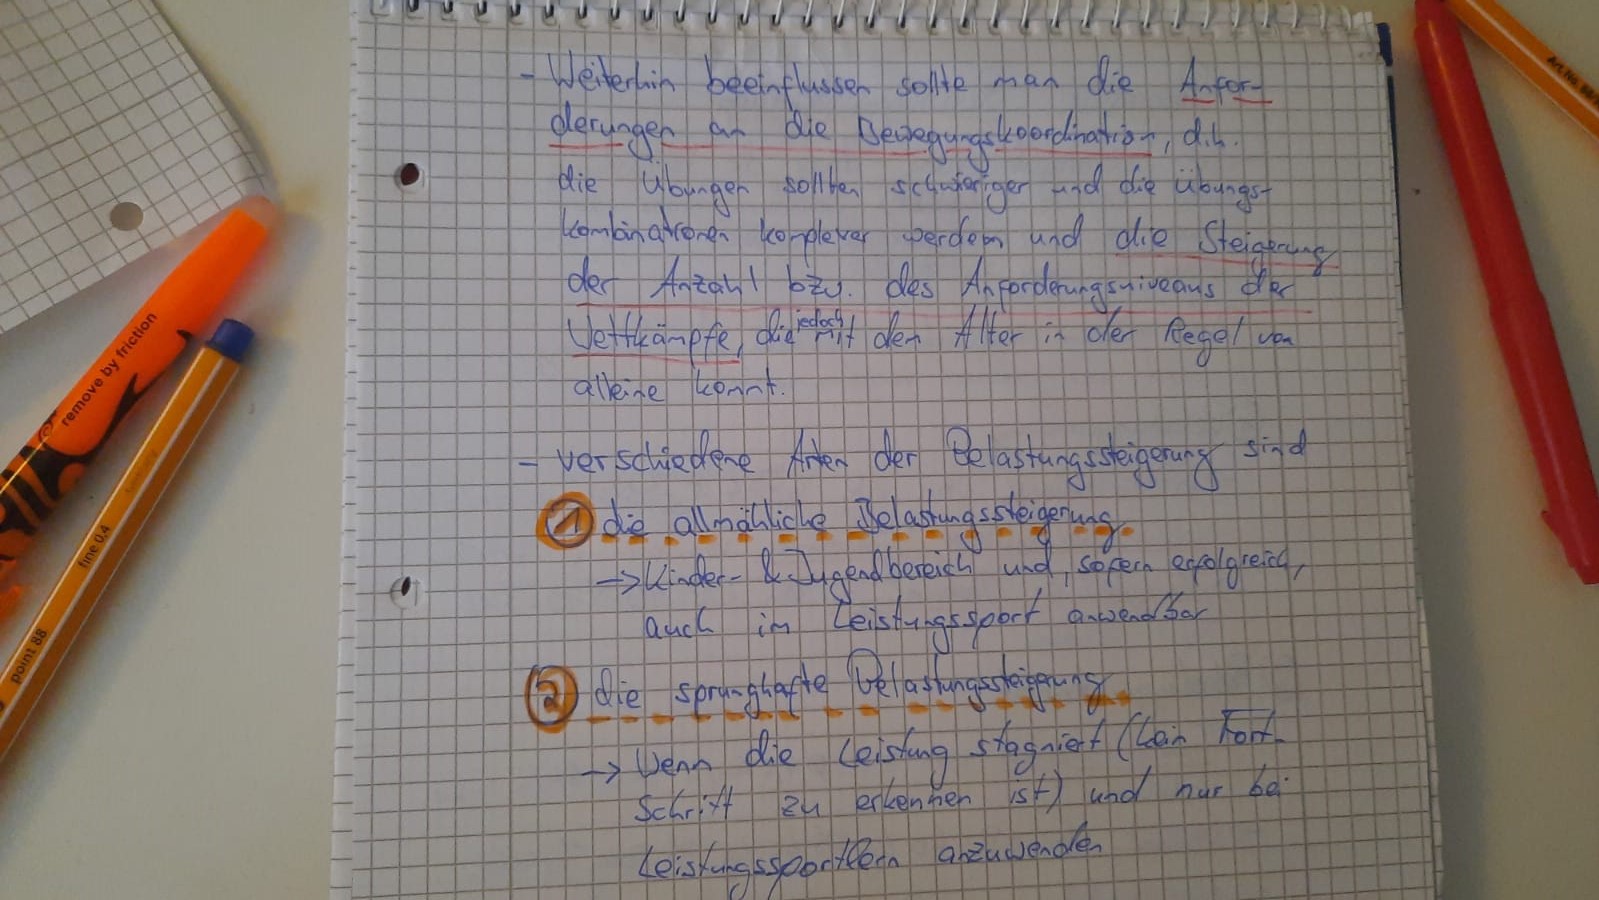 - Weiterhin beeinflussen sollte man die Anfor-
derungen an die Bewegungskoordination, d.h.
die Übungen sollten schwieriger und die Übungs-
kombinationen komplexer werden und die Steigerung
der Anzahl bzw. des Anforderungsniveaus der
Wettkämpfe, die jedoch mit dem Alter in der Regel von
alleine kommt.
- verschiedene Arten der Belastungssteigerung sind
1 die allmähliche Belastungssteigerung
→ Kinder- & Jugendbereich und, sofern erfolgreich,
auch im Leistungssport anwendbar
2 die sprunghafte Belastungssteigerung
→ Wenn die Leistung stagniert (kein Fort-
schritt zu erkennen ist) und nur bei
Leistungssportlern anzuwenden
remove by friction
fine 0,4
point 88
Art.No.